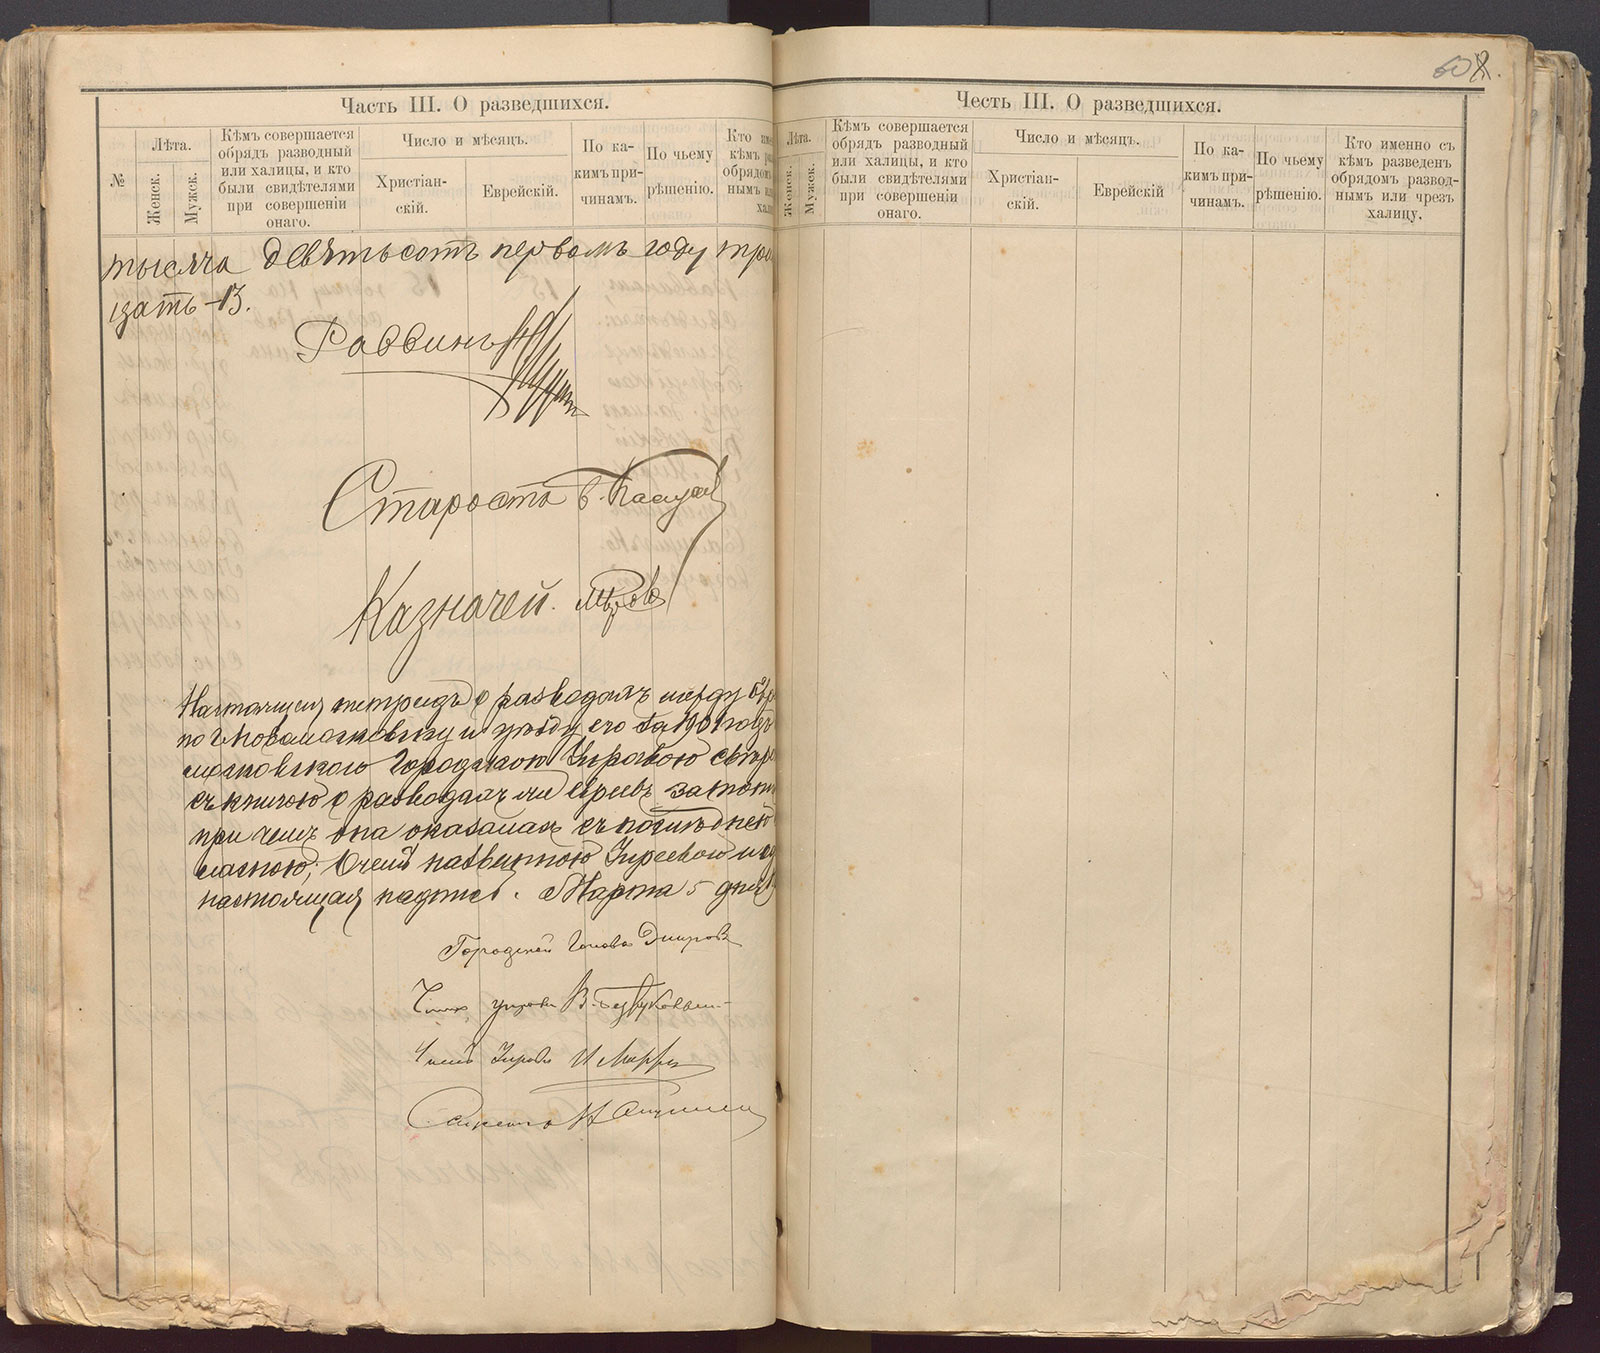 608.
Часть III. О разведшихся.
№
Лѣта.
Женск.
Мужск.
Кѣмъ совершается
обрядъ разводный
или халицы, и кто
были свидѣтелями
при совершеніи
онаго.
Число и мѣсяцъ.
Христіан-
скій.
Еврейскій.
По ка-
кимъ при-
чинамъ.
По чьему
рѣшенію.
Кто име
кѣмъ ра
обрядом
нымъ ил
хали
тысяча девятьсотъ первомъ году три
цать-13.
Раввинъ
Староста В.
Казначей.
Настоящая тетрадь о разводахъ между Евр
по г. Новомосковску и уѣзду его за 1901 годъ
московскою Городскою Управою свѣре
съ книгою о разводахъ Евреевъ за тотъ
при чемъ она оказалась съ послѣднею
ласною, въ чемъ названною Управою и
настоящая надпись. Марта 5 дня
Городской Голова
Членъ управы В.
Членъ Управы И
Секретарь
Честь III. О разведшихся.
Лѣта.
Женск.
Мужск.
Кѣмъ совершается
обрядъ разводный
или халицы, и кто
были свидѣтелями
при совершеніи
онаго.
Число и мѣсяцъ.
Христіан-
скій.
Еврейскій
По ка-
кимъ при-
чинамъ.
По чьему
рѣшенію.
Кто именно съ
кѣмъ разведенъ
обрядомъ развод-
нымъ или чрезъ
халицу.